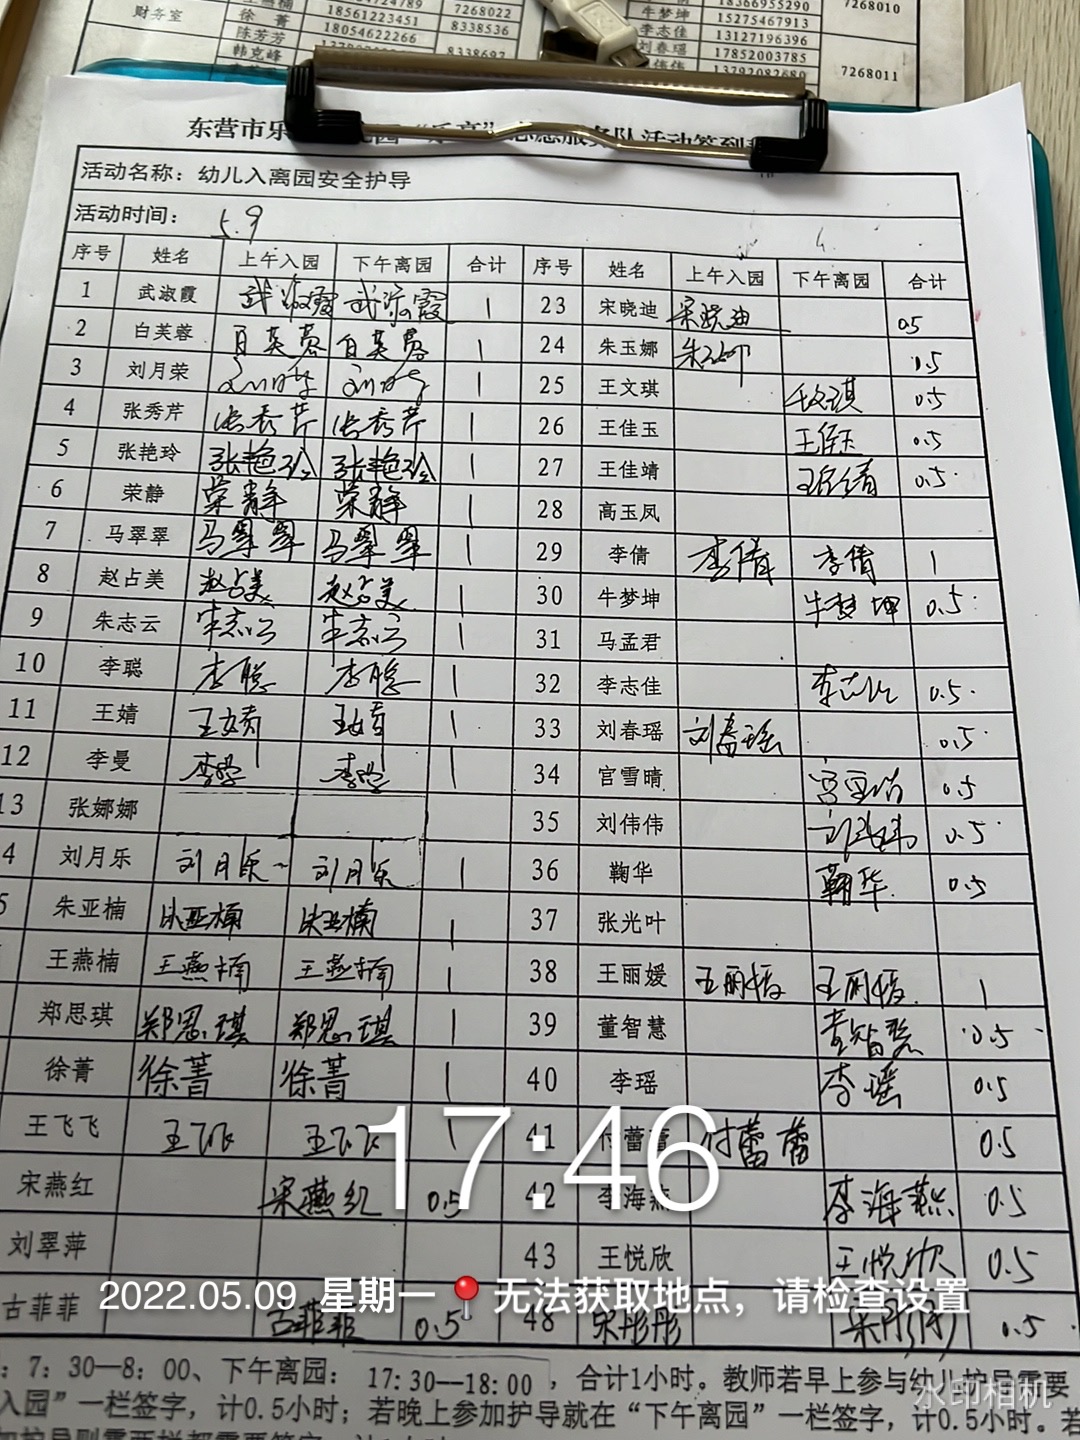 财务室 徐菁 18561223451 7268022
陈芳芳 18054622266 8338536
韩克峰
18366955290 7268010
牛梦坤 15275467913
李志佳 13127196396
刘春瑶 17852003785
伟伟 13792082680 7268011
活动名称：幼儿入离园安全护导
活动时间： 5.9
序号 姓名 上午入园 下午离园 合计 序号 姓名 上午入园 下午离园 合计
1 武淑霞 武淑霞 武淑霞 1 23 宋晓迪 宋晓迪 0.5
2 白芙蓉 白芙蓉 白芙蓉 1 24 朱玉娜 朱玉娜 0.5
3 刘月荣 1 25 王文琪 王文琪 0.5
4 张秀芹 张秀芹 张秀芹 1 26 王佳玉 王佳玉 0.5
5 张艳玲 张艳玲 张艳玲 1 27 王佳靖 王佳靖 0.5
6 荣静 荣静 荣静 1 28 高玉凤
7 马翠翠 马翠翠 马翠翠 1 29 李倩 李倩 李倩 1
8 赵占美 赵占美 赵占美 1 30 牛梦坤 牛梦坤 0.5
9 朱志云 朱志云 朱志云 1 31 马孟君
10 李聪 李聪 李聪 1 32 李志佳 李志佳 0.5
11 王婧 王婧 王婧 1 33 刘春瑶 刘春瑶 0.5
12 李曼 李曼 李曼 1 34 官雪晴 官雪晴 0.5
13 张娜娜 35 刘伟伟 刘伟伟 0.5
4 刘月乐 刘月乐 刘月乐 1 36 鞠华 鞠华 0.5
5 朱亚楠 朱亚楠 朱亚楠 1 37 张光叶
王燕楠 王燕楠 王燕楠 1 38 王丽媛 王丽媛 王丽媛 1
郑思琪 郑思琪 郑思琪 1 39 董智慧 董智慧 0.5
徐菁 徐菁 徐菁 1 40 李瑶 李瑶 0.5
王飞飞 王飞飞 王飞飞 1 41 付蕾蕾 付蕾蕾 0.5
17:46
宋燕红 宋燕红 0.5 42 李海燕 李海燕 0.5
刘翠萍 43 王悦欣 王悦欣 0.5
2022.05.09 星期一 无法获取地点，请检查设置
古菲菲 古菲菲 0.5 48 宋彤彤 宋彤彤 0.5
：7：30—8：00、下午离园：17:30--18:00，合计1小时。教师若早上参与幼儿护导需要
入园”一栏签字，计0.5小时；若晚上参加护导就在“下午离园”一栏签字，计0.5小时。若
水印相机